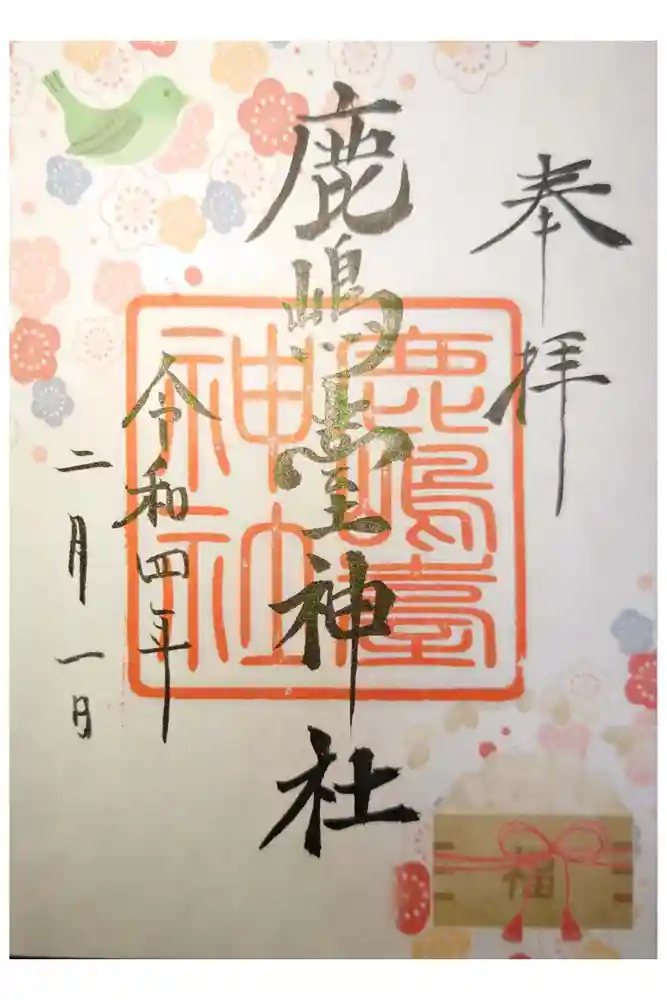 奉拝
鹿嶋臺神社
鹿嶋臺
神社
令和四年
二月一日
福